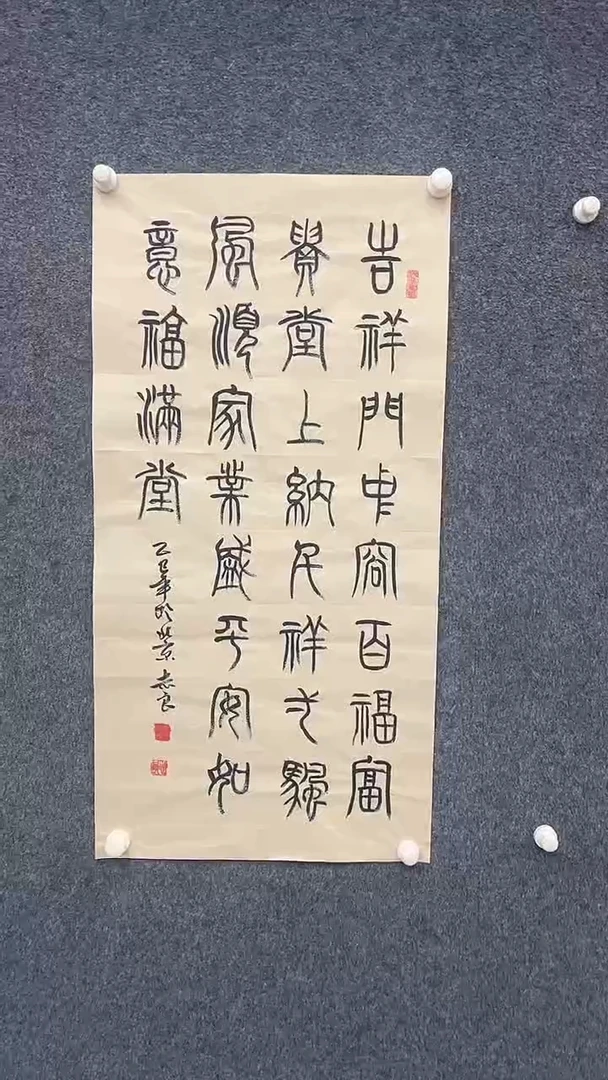 吉祥門中容百福富
貴堂上納千祥弌颿
風順家業盛平安如
意福滿堂
乙巳年於北京 志良